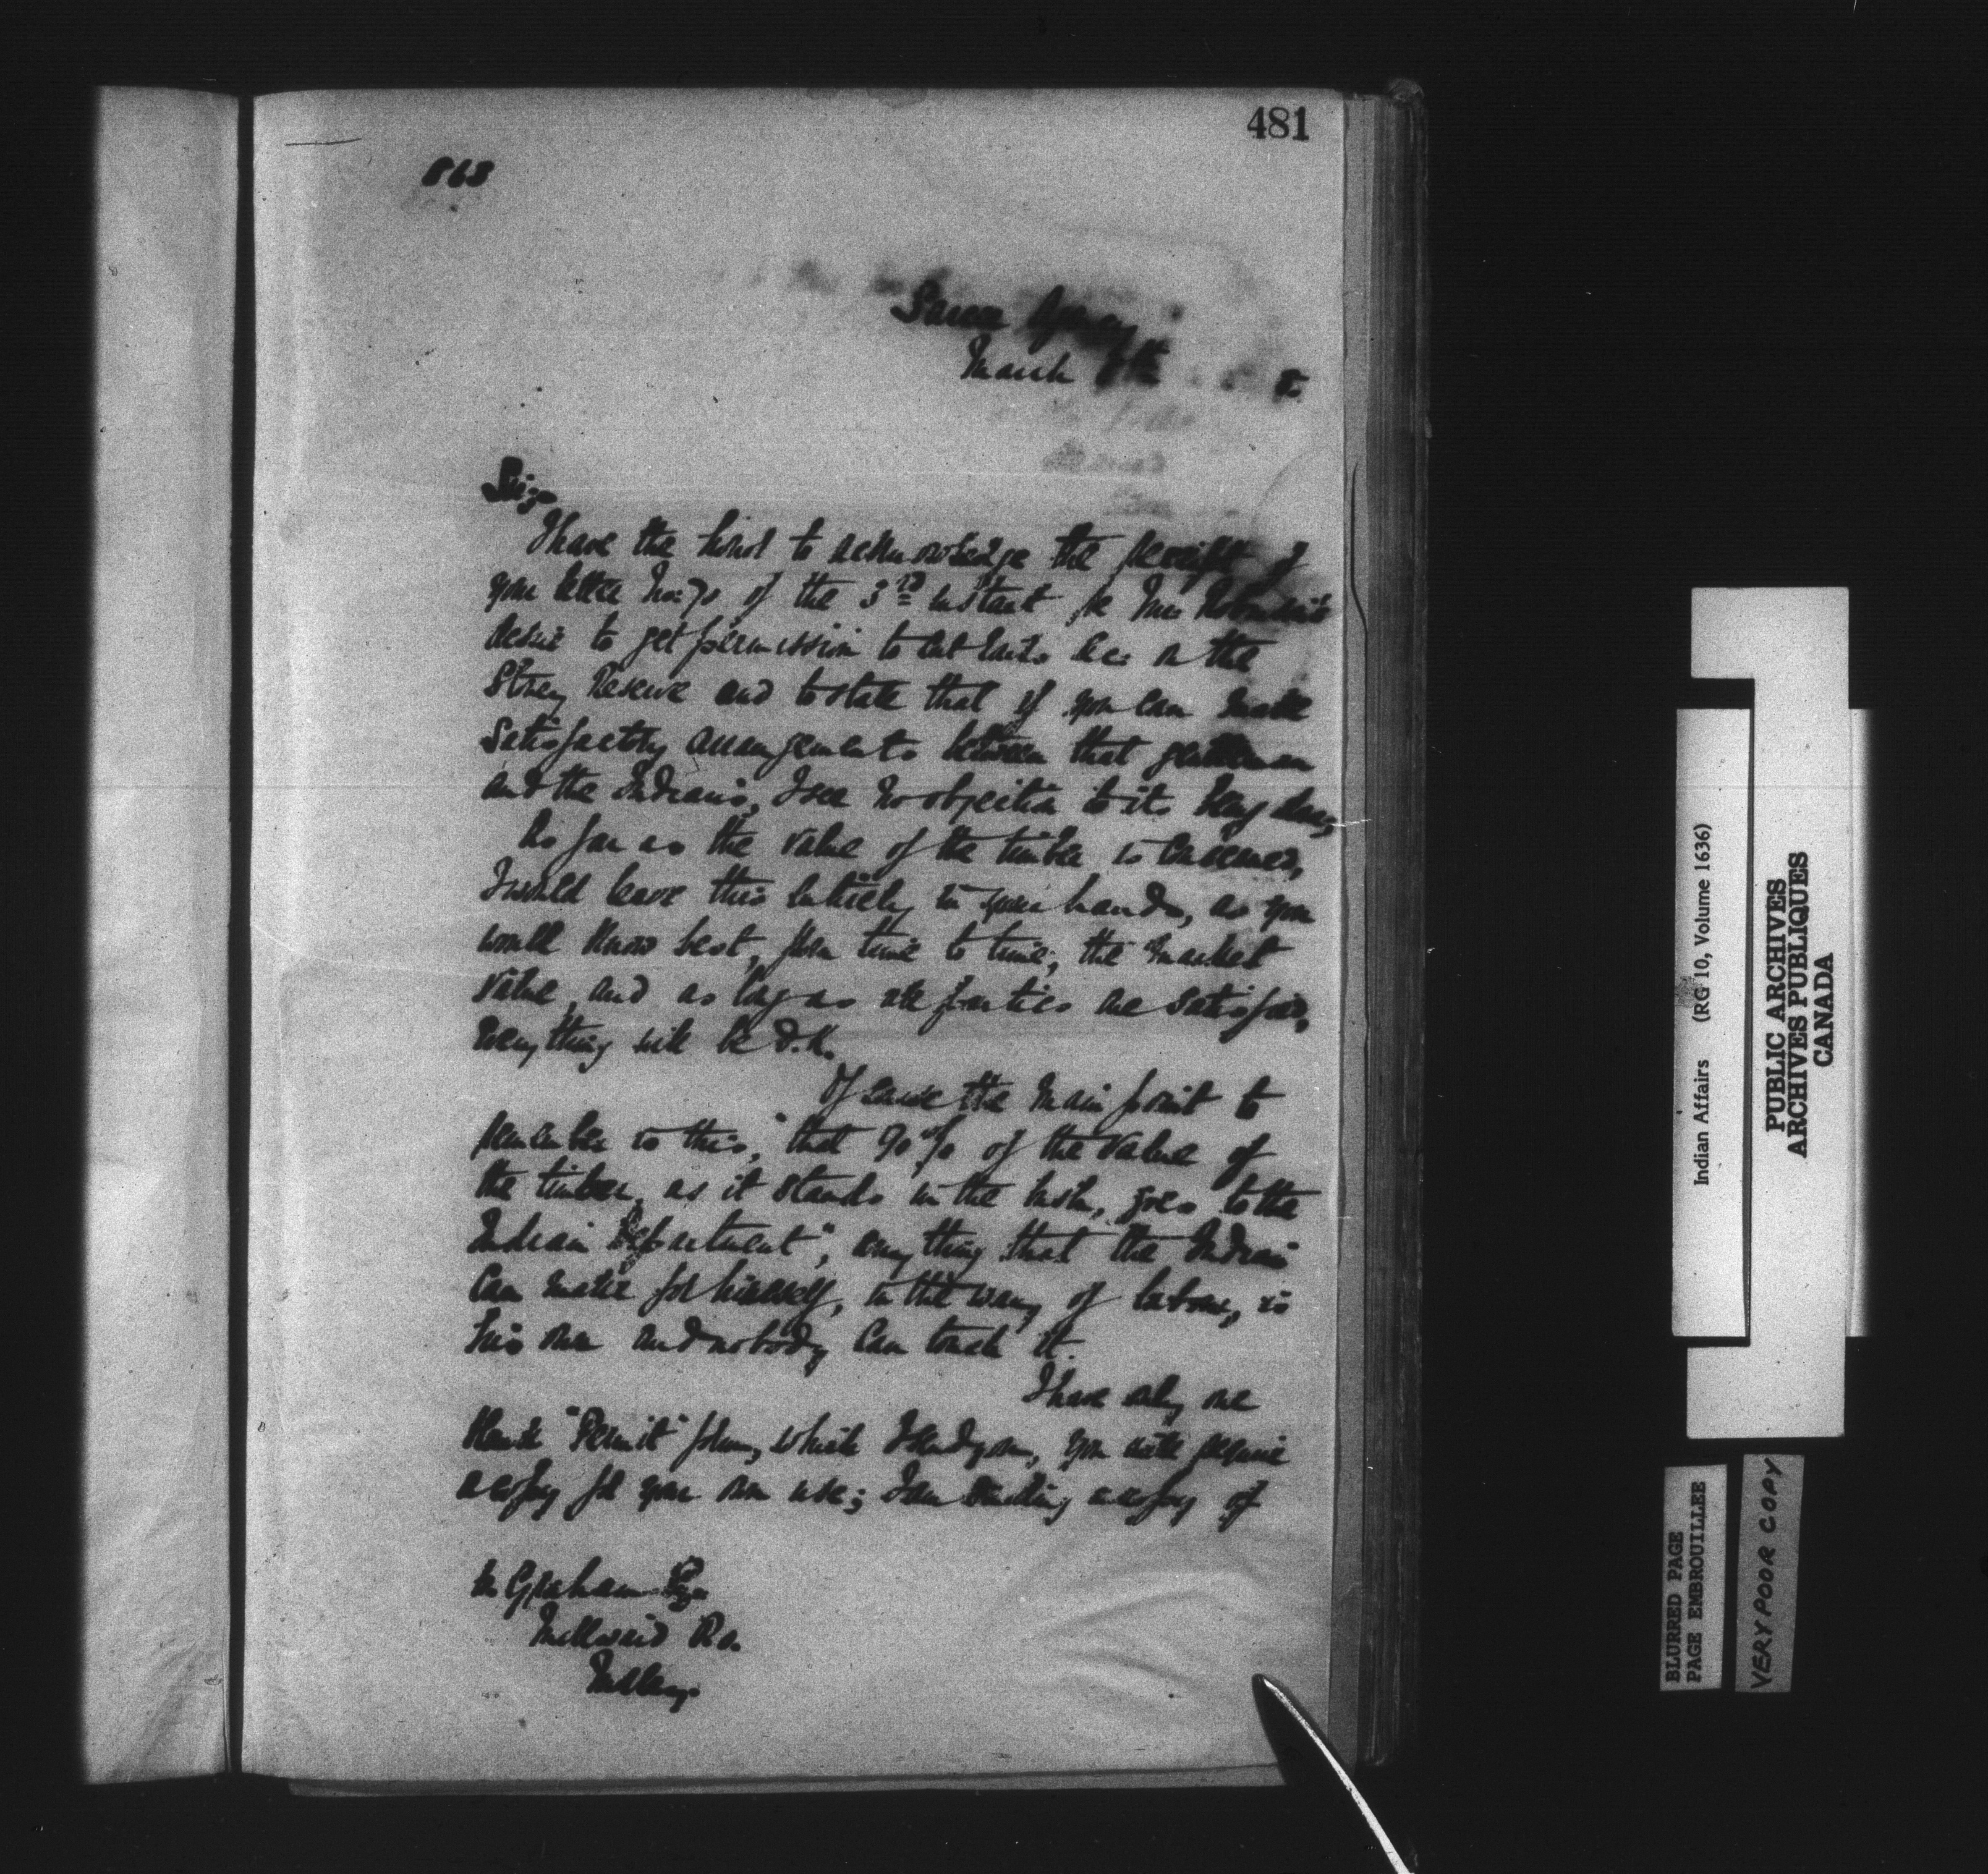 481
868
Sarcee Agency
March 8th
Sir,
I have the honor to acknowledge the receipt of
your letter No: 70 of the 3rd instant re Mr Robinson's
desire to get permission to cut &c: on the
Stoney Reserve and to state that if you can make
satisfactory arrangements between that gentleman
and the Indians, I see no objection to its being done,
As far as the value of the timber is concerned,
I would leave this entirely in your hands, as you
would know best, from time to time, the market
value, and as long as all parties are satisfied,
everything will be O.K.
Of course the main point to
remember is this, "that 90% of the value of
the timber, as it stands in the bush, goes to the
Indian Department", anything that the Indian
can make for himself, in the way of labour, is
his own and nobody can touch it.
I have only one
blank "Permit" form, which I send you, you will require
a copy for your own use; I am sending a copy of
Graham Esqr
Morley
Indian Affairs (RG 10, Volume 1636)
PUBLIC ARCHIVES
ARCHIVES PUBLIQUES
CANADA
BLURRED PAGE
PAGE EMBROUILLEE
VERY POOR COPY